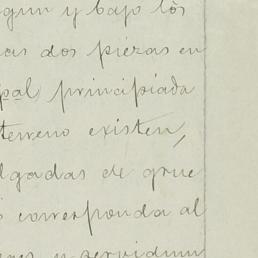 egun y bajo los
as dos piezas en
pal, principiada
terreno existen,
lgadas de grue
corresponda al
y servidum